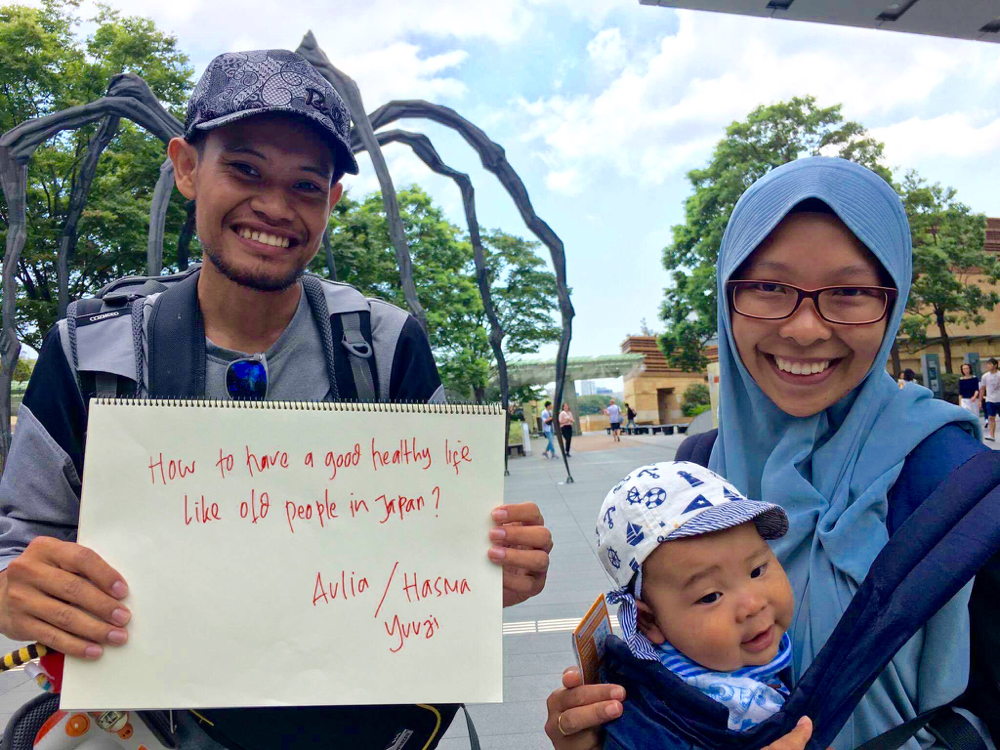 How to have a good healthy life
like old people in Japan?
Aulia / Hasma
Yuuji